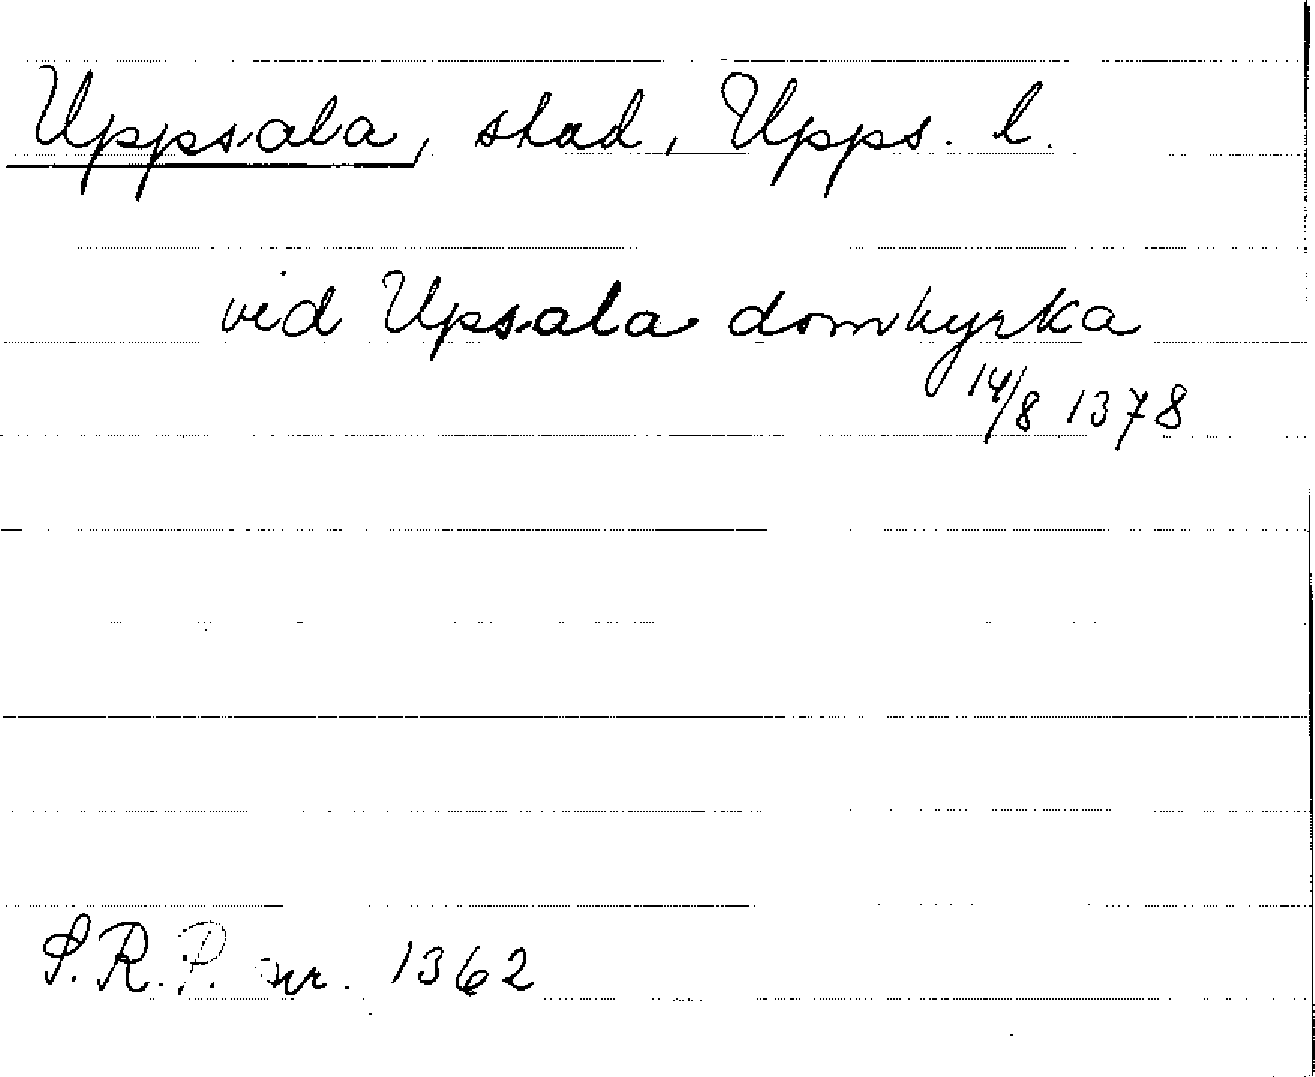 Uppsala, stad, Upps. l.
vid Upsala domkyrka
14/8 1378
S.R.P. nr. 1362